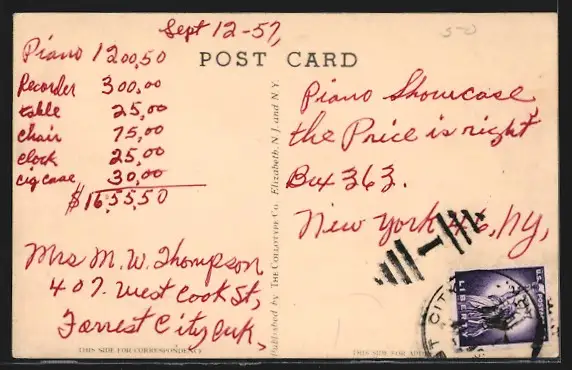 Sept 12-57,
50
POST CARD
Piano 1200,50
Recorder 300,00
table 25,00
chair 75,00
clock 25,00
cig case 30,00
$1655,50
Mrs M. W. Thompson
407. West Cook St,
Forrest City, Ark,
THIS SIDE FOR CORRESPONDENCE
Published by THE COLLOTYPE CO. Elizabeth, N. J. and N. Y.
Piano Showcase,
the Price is right
Box 363.
New York 46, NY,
U.S. POSTAGE
LIBERTY
CITY
THIS SIDE FOR